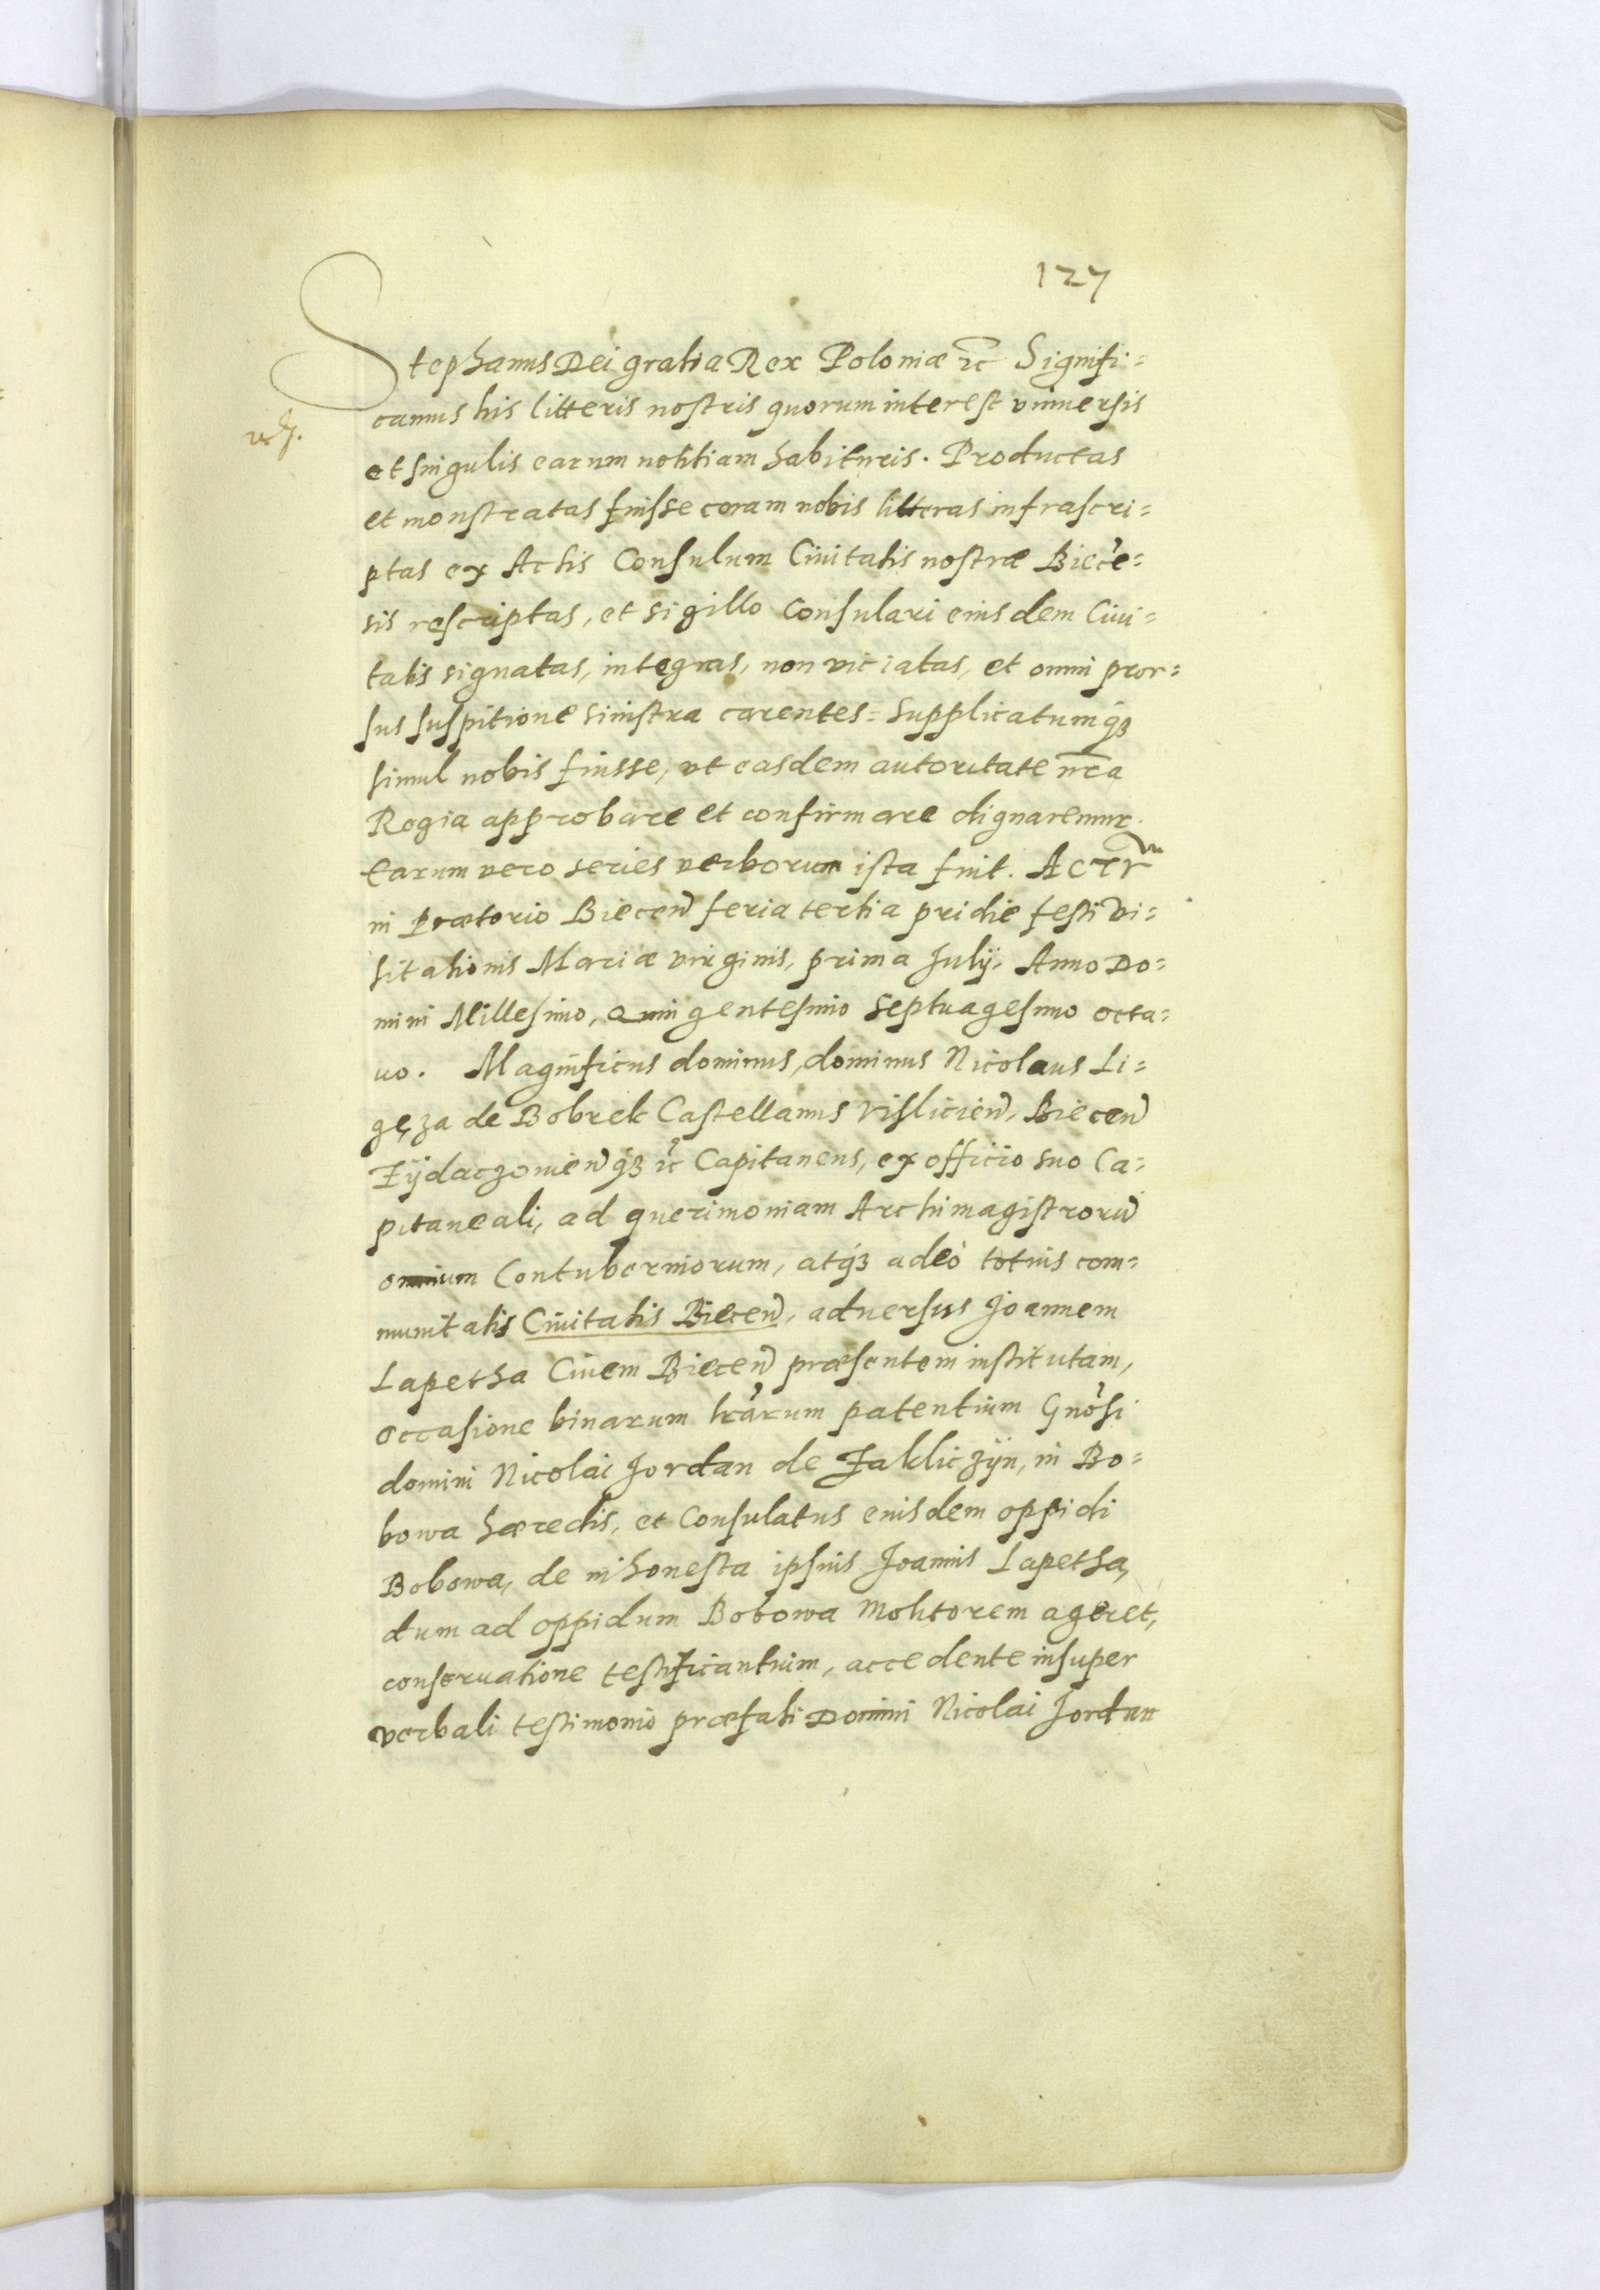 127
Stephanus Dei gratia Rex Poloniæ etc Signifi=
camus his litteris nostris quorum interest vniuersis
et singulis earum notitiam habituris. Productas
et monstratas fuisse coram nobis litteras infrascri=
ptas ex Actis Consulum Ciuitatis nostræ Biece=
sis rescriptas, et sigillo Consulari eiusdem Ciui=
tatis signatas, integras, non viciatas, et omni pror=
sus suspitione sinistra carentes= Supplicatumq3
simul nobis fuisse, vt easdem autoritate nra
Regia approbare et confirmare dignaremur.
Earum vero series verborum ista fuit. Actum
in Prætorio Biecen feria tertia pridie festi Vi=
sitationis Mariæ virginis, prima Julij, Anno Do=
mini Millesimo, Quingentesimo Septuagesimo octa=
uo. Magnificus dominus, dominus Nicolaus Li=
gęza de Bobrek Castellanus Vislicien, Biecen
Zÿdaczouien q3 etc Capitaneus, ex officio suo Ca=
pitaneali, ad querimoniam Archimagistroru
omnium Contuberniorum, atq3 adeò totius com=
munitatis Ciuitatis Biecen, aduersus Joannem
Lapetha Ciuem Biecen præsentem institutam,
occasione binarum lrarum patentium Gnosi
domini Nicolai Jordan de Zakliczÿn, in Bo=
bowa hæredis, et Consulatus eiusdem oppidi
Bobowa, de inhonesta ipsius Joannis Lapetha,
dum ad oppidum Bobowa Molitorem ageret,
conseruatione testificantium, accedente insuper
verbali testimonio præfati Domini Nicolai Jordan